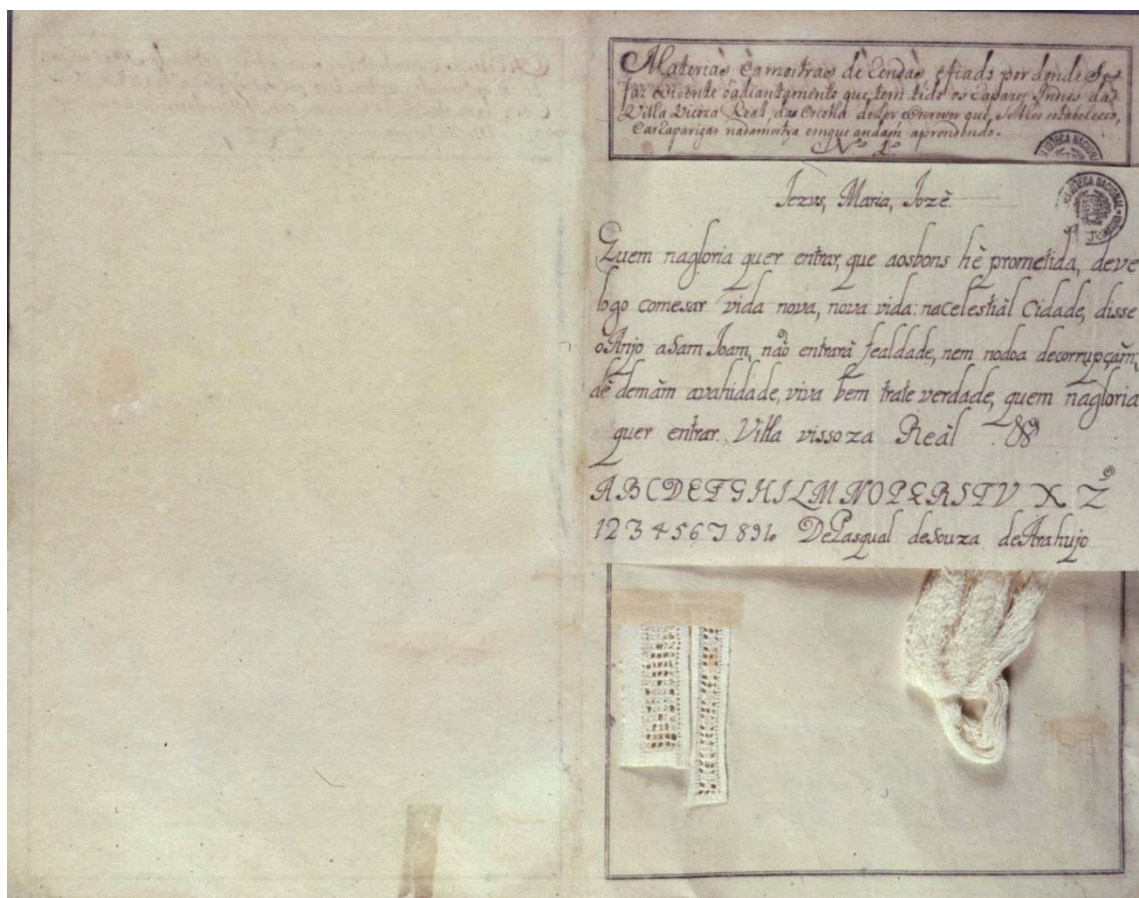 Materias e amostras de Rendas, e fiado por donde Se
faz evidente o adiantamento que tem tido os Rapazes Indios da
Villa Viçoza Real, das Escolla de Ler e Escrever que, Se lhes estabeleceo,
e as Raparigas na da mestra em que andam aprendendo.
Nº 1º
Jezus, Maria, Jozê.
Quem nagloria quer entrar, que aosbons hê prometida, deve
logo comesar vida nova, nova vida: nacelestiâl Cidade, disse
oAnjo aSam Joam, não entrarâ fealdade, nem nodoa decorrupçâm,
dê demâm avahidade, viva bem trate verdade, quem nagloria
quer entrar. Villa vissoza Reâl
A B C D E F G H I L M N O P Q R S T V X Z
1 2 3 4 5 6 7 8 9 10 DePasqual deSouza deArahujo
BIBLIOTECA NACIONAL